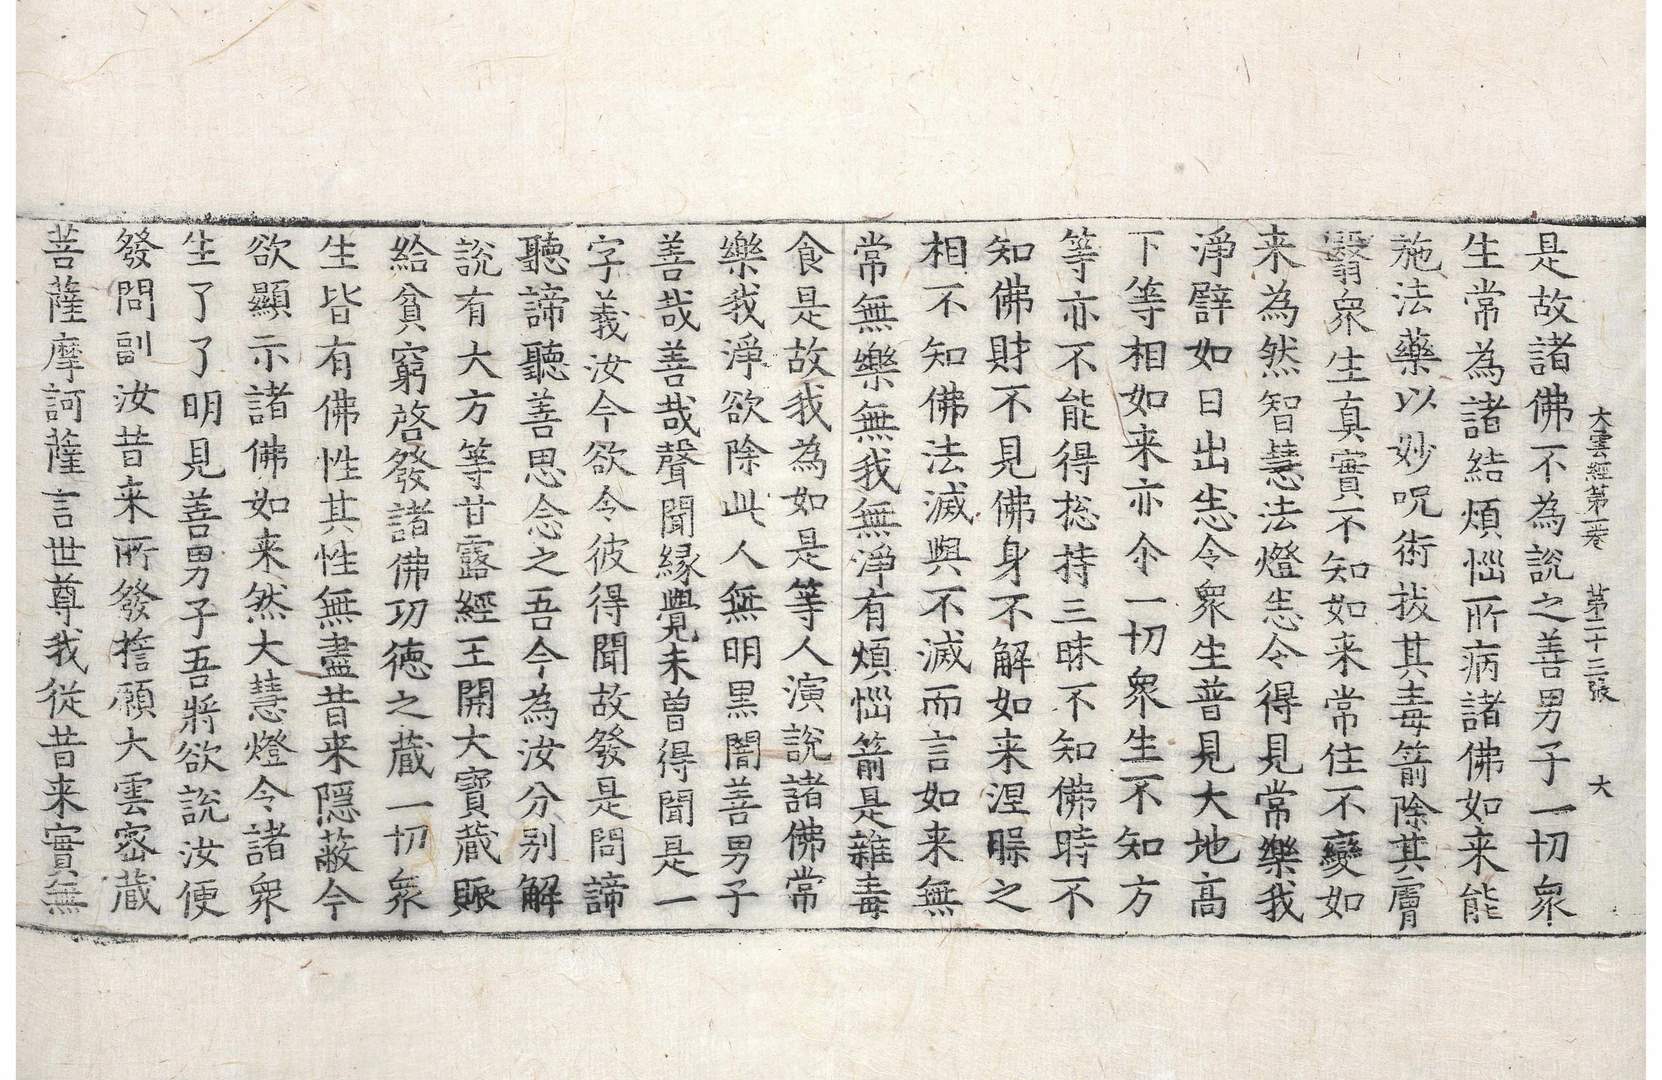 大雲經第一卷 第二十三張 大
是故諸佛不為說之善男子一切衆
生常為諸結煩惱所病諸佛如来能
施法藥以妙呪術拔其毒箭除其膚
翳衆生真實不知如来常住不變如
来為然智慧法燈悉令得見常樂我
淨譬如日出悉令衆生普見大地高
下等相如来亦尒一切衆生不知方
等亦不能得捴持三昧不知佛時不
知佛財不見佛身不解如来涅槃之
相不知佛法滅與不滅而言如来無
常無樂無我無淨有煩惱箭是雜毒
食是故我為如是等人演說諸佛常
樂我淨欲除此人無明黒闇善男子
善哉善哉聲聞緣覺未曾得聞是一
字義汝今欲令彼得聞故發是問諦
聽諦聽善思念之吾今為汝分別解
說有大方等甘露經王開大寶蔵賑
給貧窮啓發諸佛功德之蔵一切衆
生皆有佛性其性無盡昔来隱蔽今
欲顯示諸佛如来然大慧燈令諸衆
生了了明見善男子吾將欲說汝便
發問副汝昔来所發擔願大雲密蔵
菩薩摩訶薩言世尊我從昔来實無